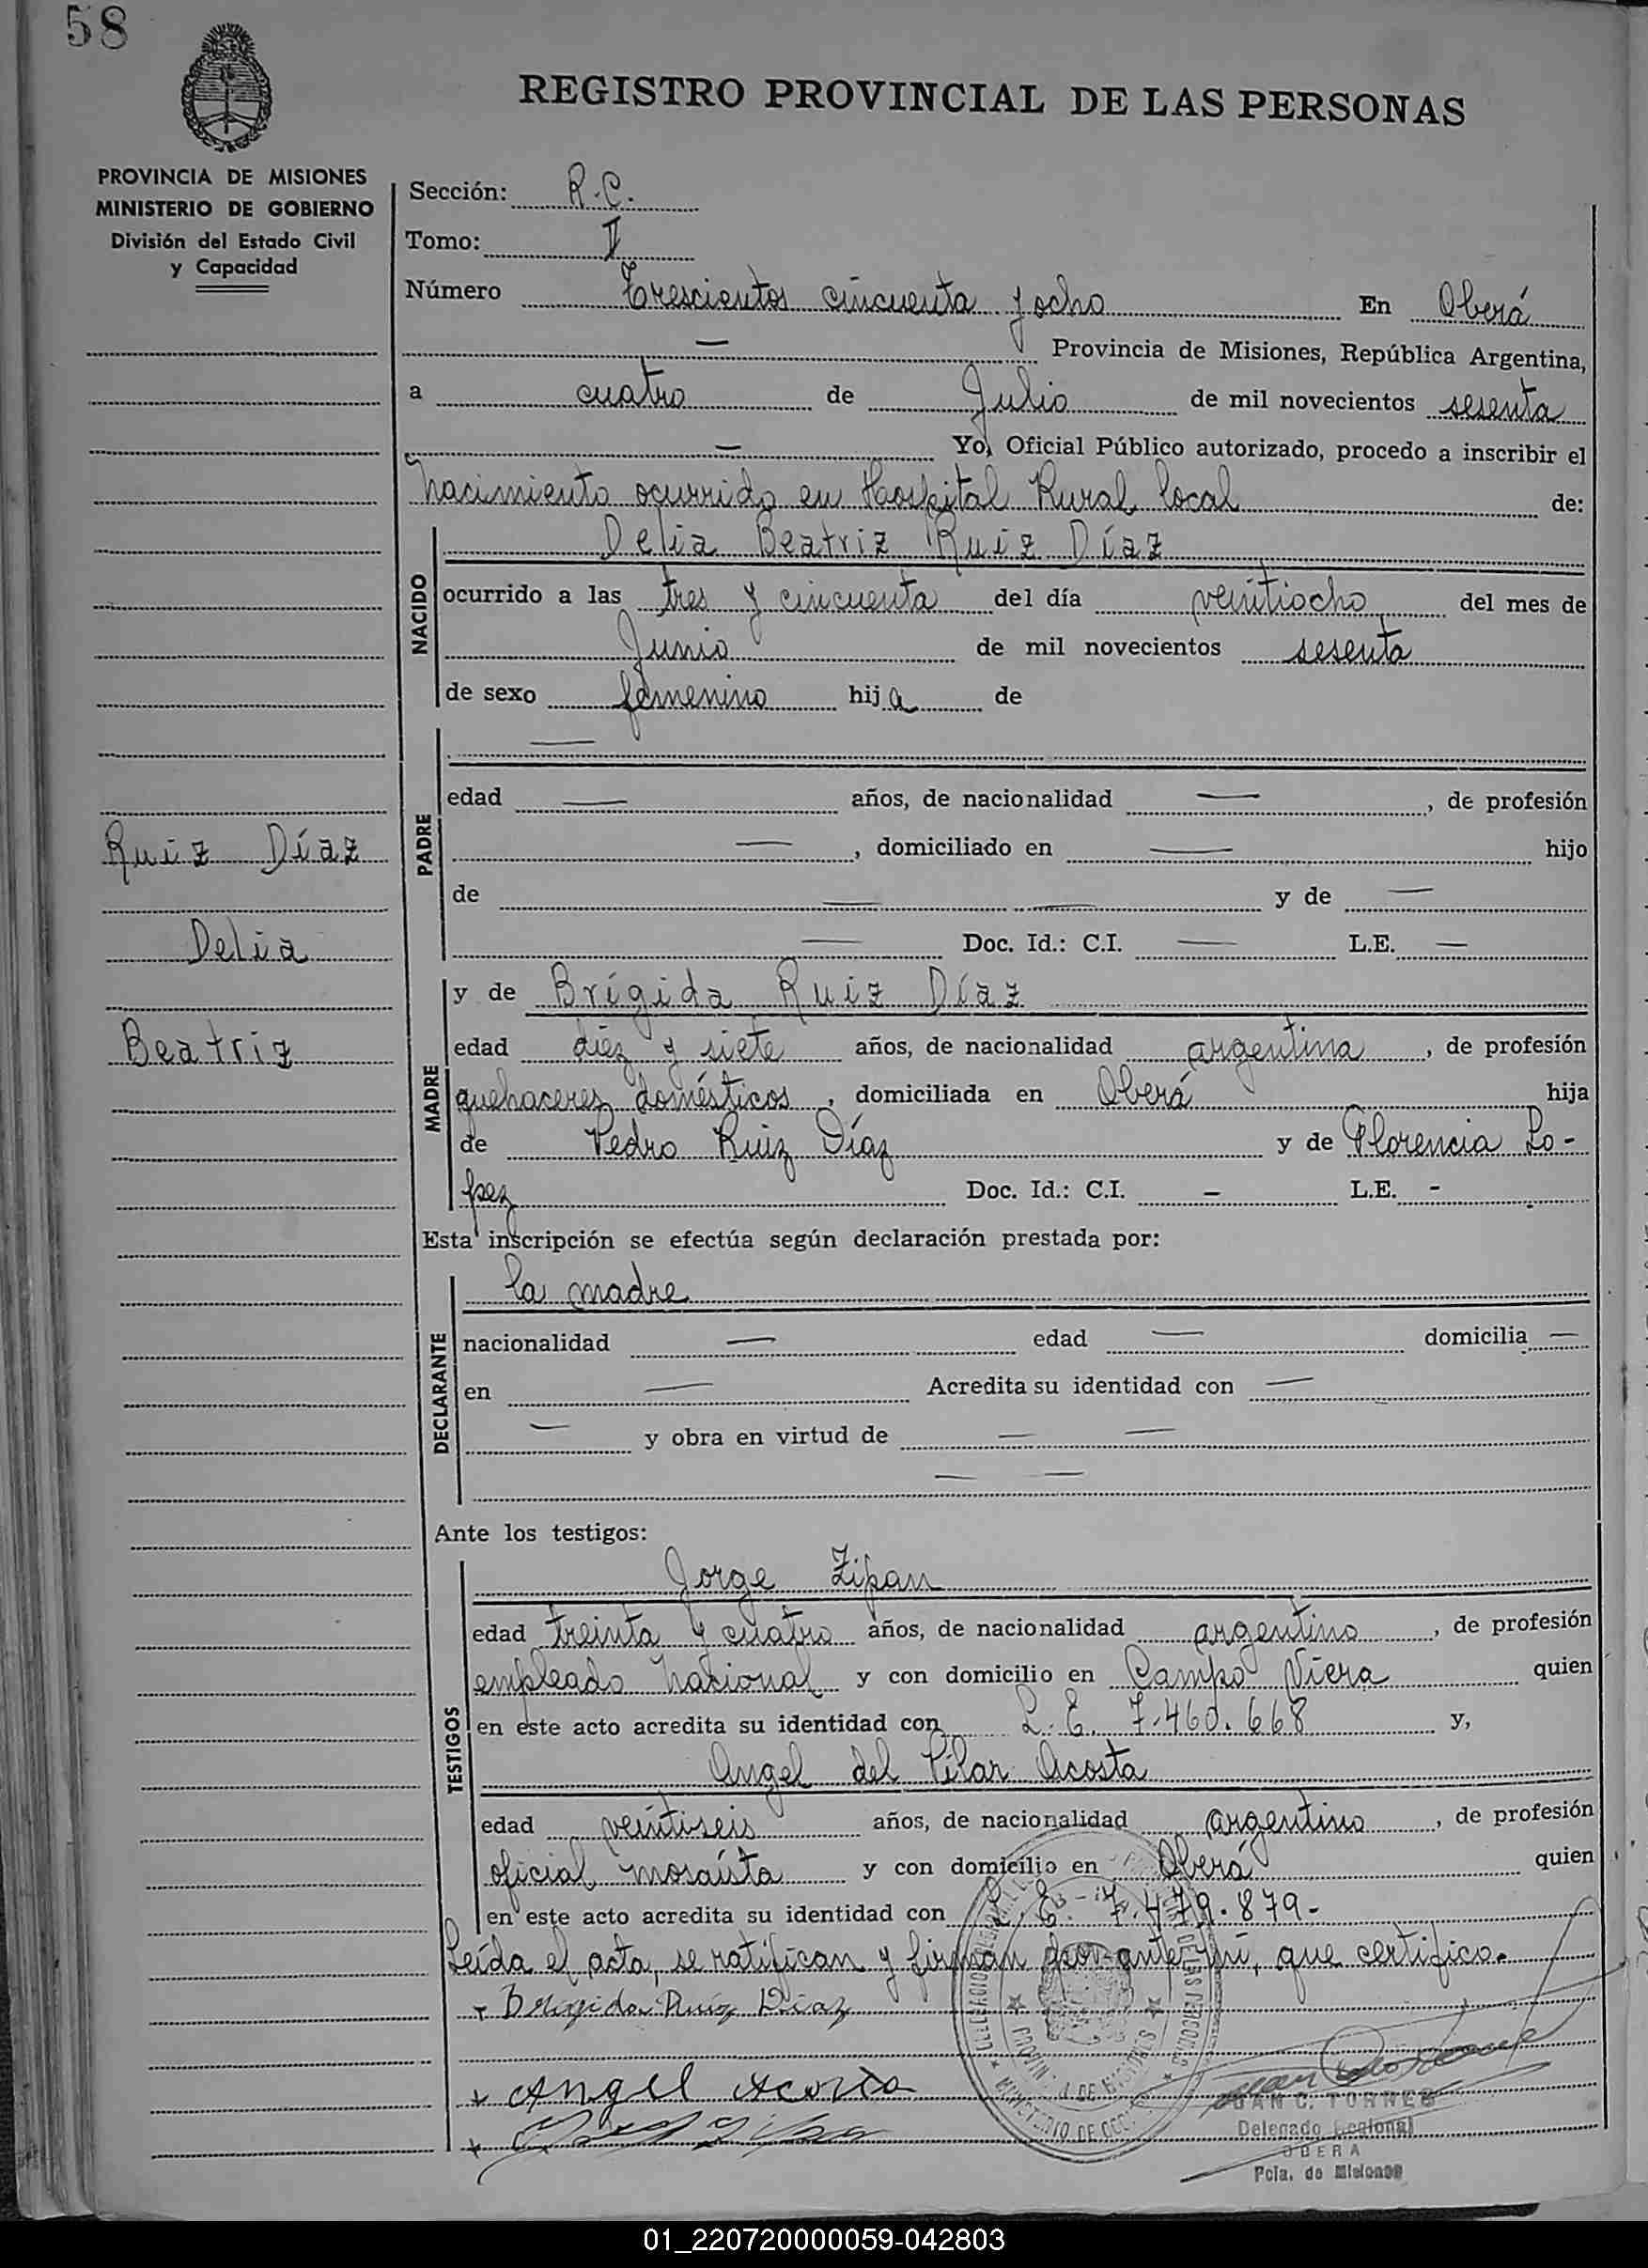 58
REGISTRO PROVINCIAL DE LAS PERSONAS
PROVINCIA DE MISIONES
MINISTERIO DE GOBIERNO
División del Estado Civil
y Capacidad
Sección: R.C.
Tomo: II
Número Trescientos cincuenta y ocho En Oberá
— Provincia de Misiones, República Argentina,
a cuatro de Julio de mil novecientos sesenta
— Yo, Oficial Público autorizado, procedo a inscribir el
nacimiento ocurrido en Hospital Rural local de:
NACIDO
Delia Beatriz Ruiz Díaz
ocurrido a las tres y cincuenta del día veintiocho del mes de
Junio de mil novecientos sesenta
de sexo femenino hija de
PADRE
—
edad — años, de nacionalidad —, de profesión
—, domiciliado en — hijo
de — — y de —
— Doc. Id.: C.I. — L.E. —
Ruiz Díaz
Delia
Beatriz
MADRE
y de Brígida Ruiz Díaz
edad diez y siete años, de nacionalidad argentina, de profesión
quehaceres domésticos, domiciliada en Oberá hija
de Pedro Ruiz Díaz y de Florencia Lo-
pez Doc. Id.: C.I. — L.E. -
Esta inscripción se efectúa según declaración prestada por:
DECLARANTE
la madre
nacionalidad — edad — domicilia —
en — Acredita su identidad con —
— y obra en virtud de — —
— —
Ante los testigos:
TESTIGOS
Jorge Zipan
edad treinta y cuatro años, de nacionalidad argentino, de profesión
empleado Nacional y con domicilio en Campo Viera quien
en este acto acredita su identidad con L.E. 7.460.668 y,
Angel del Pilar Acosta
edad veintiseis años, de nacionalidad argentino, de profesión
oficial mosaísta y con domicilio en Oberá quien
en este acto acredita su identidad con L.E. 7.479.879.-
Leída el acta, se ratifican y firman por ante mí, que certifico.
Brigida Ruiz Diaz
Angel Acosta
JUAN C. TORRES
Delegado Regional
OBERA
Pcia. de Misiones
01_220720000059-042803